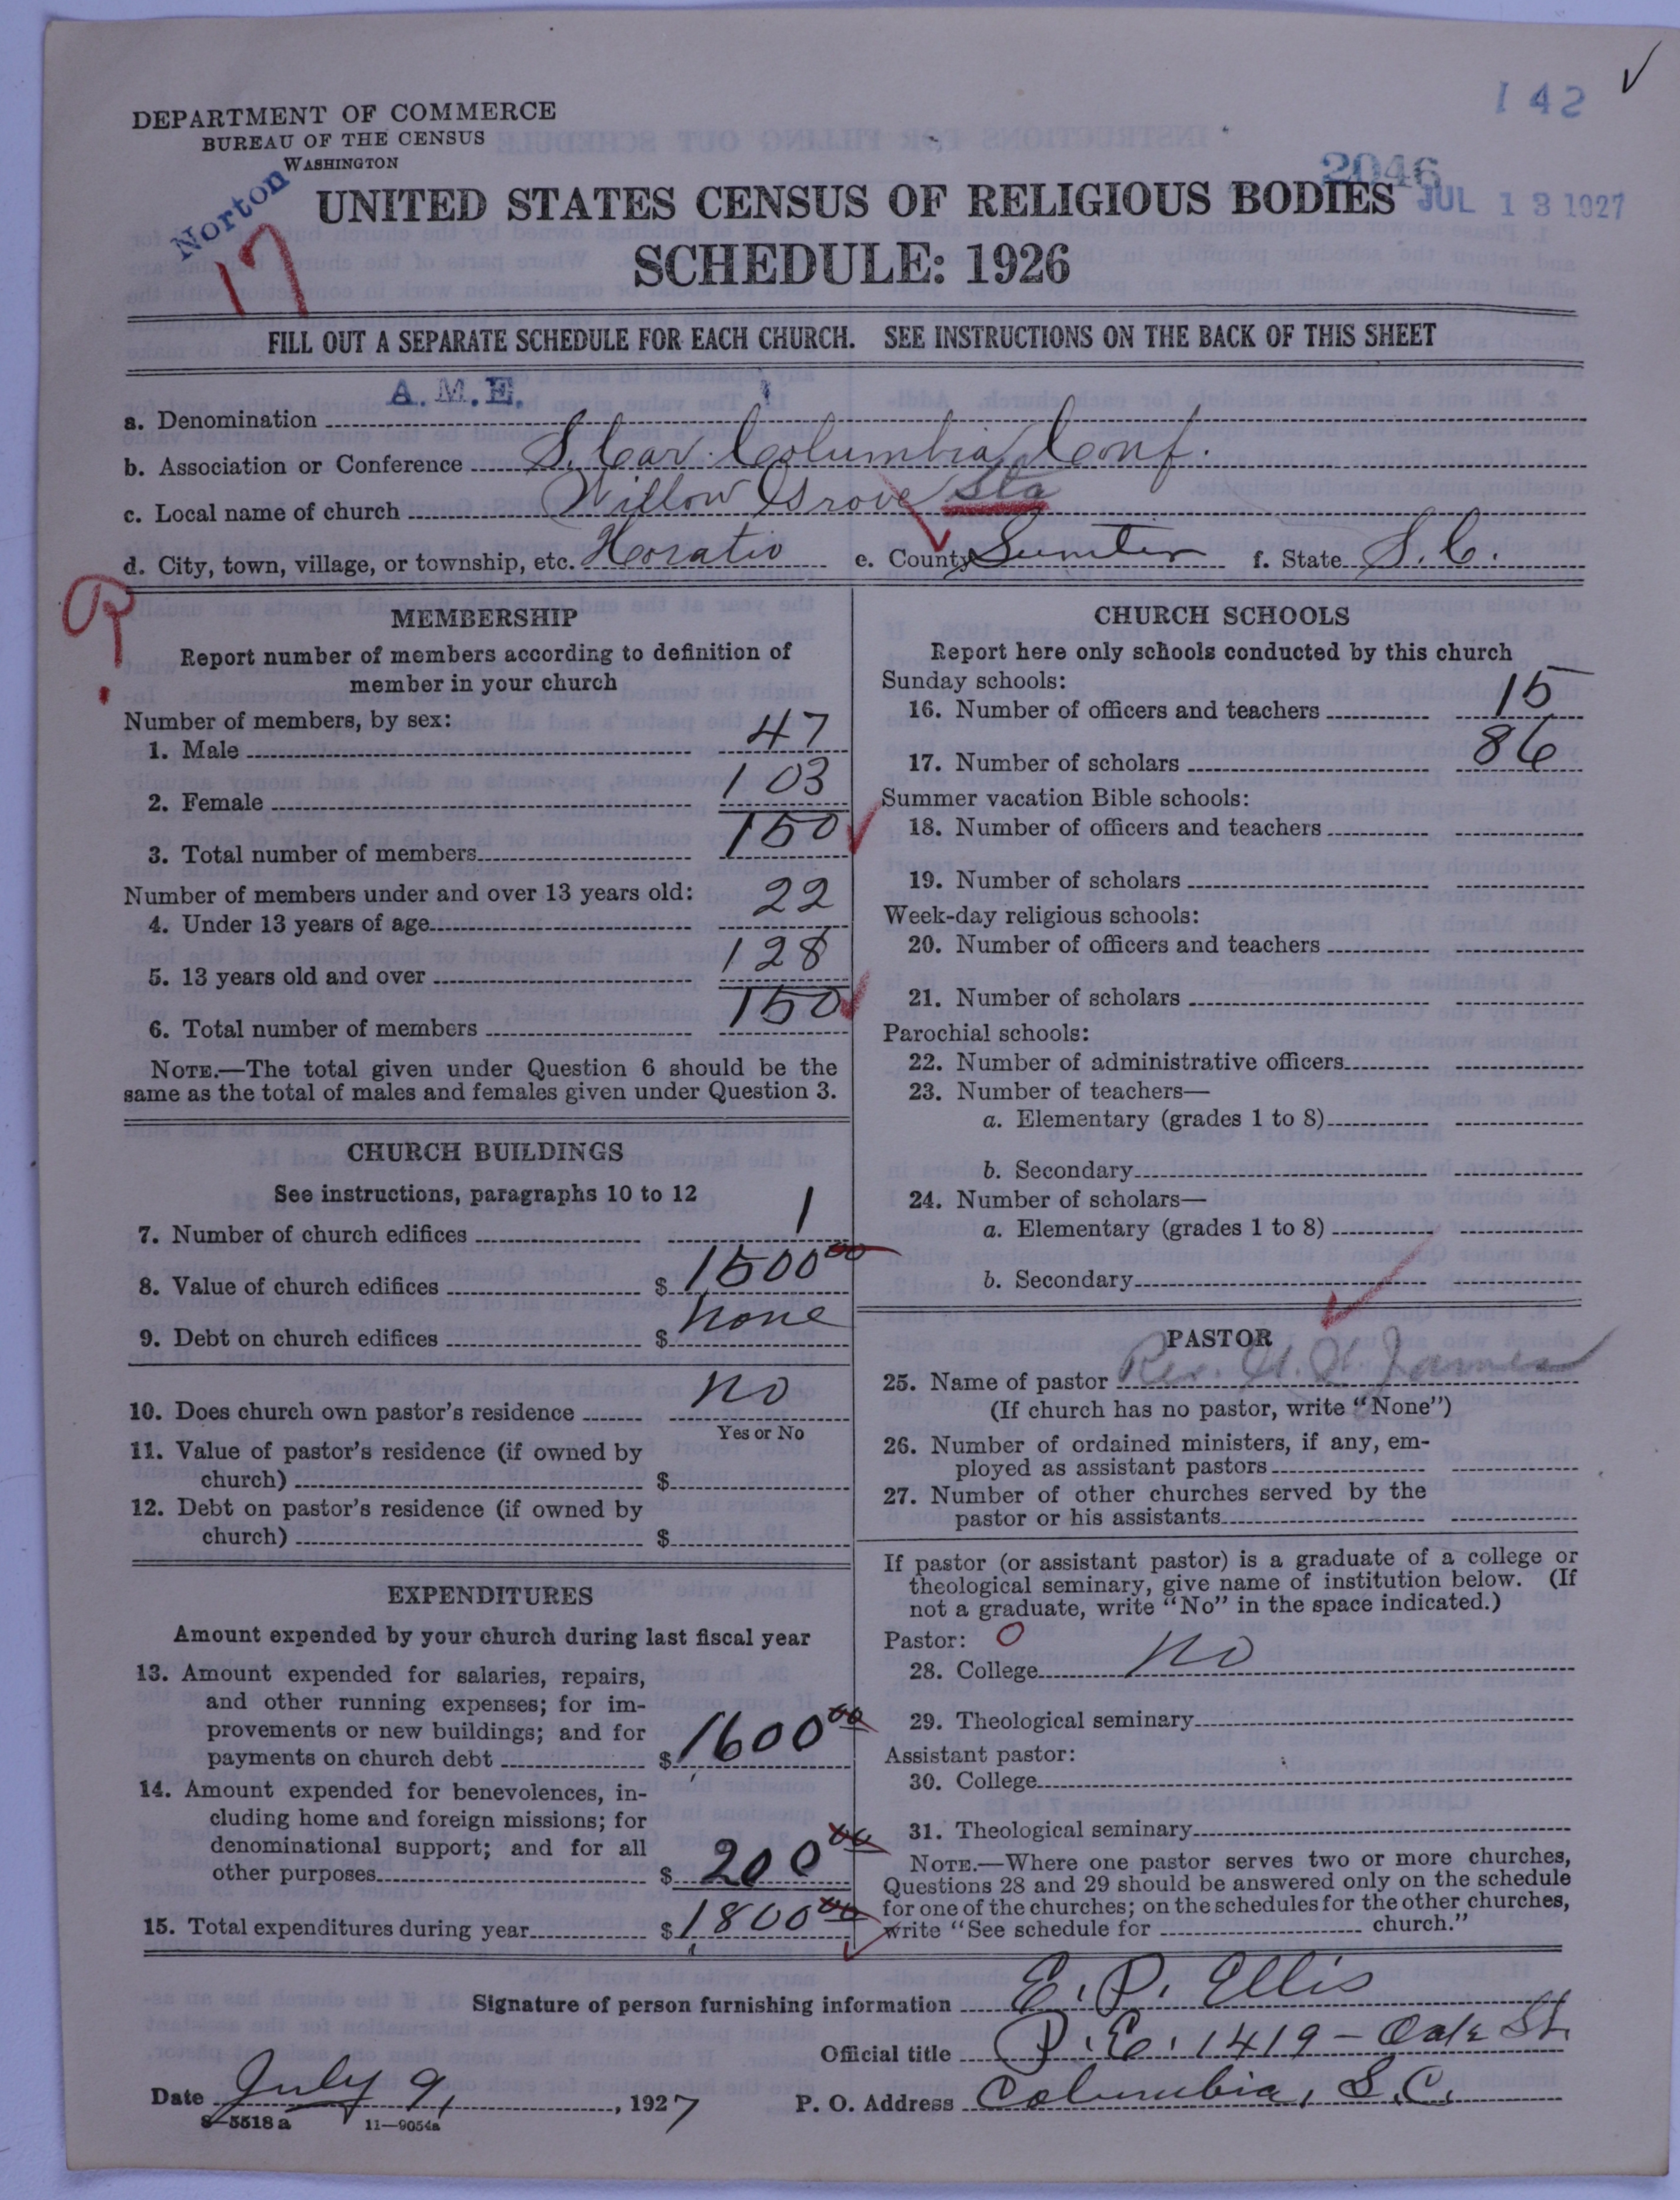 142
DEPARTMENT OF COMMERCE
BUREAU OF THE CENSUS
WASHINGTON
Norton
17
2046
JUL 13 1927
UNITED STATES CENSUS OF RELIGIOUS BODIES
SCHEDULE: 1926
FILL OUT A SEPARATE SCHEDULE FOR EACH CHURCH. SEE INSTRUCTIONS ON THE BACK OF THIS SHEET
a. Denomination A.M.E.
b. Association or Conference S. Car. Columbia Conf.
c. Local name of church Willow Grove Sta
d. City, town, village, or township, etc. Horatio e. County Sumter f. State S.C.
MEMBERSHIP
Report number of members according to definition of
member in your church
Number of members, by sex:
1. Male 47
2. Female 103
3. Total number of members 150
Number of members under and over 13 years old:
4. Under 13 years of age 22
5. 13 years old and over 128
6. Total number of members 150
NOTE.—The total given under Question 6 should be the
same as the total of males and females given under Question 3.
CHURCH BUILDINGS
See instructions, paragraphs 10 to 12
7. Number of church edifices 1
8. Value of church edifices $ 1500 00
9. Debt on church edifices $ none
10. Does church own pastor's residence no
Yes or No
11. Value of pastor's residence (if owned by
church) $
12. Debt on pastor's residence (if owned by
church) $
EXPENDITURES
Amount expended by your church during last fiscal year
13. Amount expended for salaries, repairs,
and other running expenses; for im-
provements or new buildings; and for
payments on church debt $ 1600 00
14. Amount expended for benevolences, in-
cluding home and foreign missions; for
denominational support; and for all
other purposes $ 200 00
15. Total expenditures during year $ 1800 00
CHURCH SCHOOLS
Report here only schools conducted by this church
Sunday schools:
16. Number of officers and teachers 15
17. Number of scholars 86
Summer vacation Bible schools:
18. Number of officers and teachers
19. Number of scholars
Week-day religious schools:
20. Number of officers and teachers
21. Number of scholars
Parochial schools:
22. Number of administrative officers
23. Number of teachers—
a. Elementary (grades 1 to 8)
b. Secondary
24. Number of scholars—
a. Elementary (grades 1 to 8)
b. Secondary
PASTOR
25. Name of pastor Rev. James
(If church has no pastor, write "None")
26. Number of ordained ministers, if any, em-
ployed as assistant pastors
27. Number of other churches served by the
pastor or his assistants
If pastor (or assistant pastor) is a graduate of a college or
theological seminary, give name of institution below. (If
not a graduate, write "No" in the space indicated.)
Pastor: 0
28. College no
29. Theological seminary
Assistant pastor:
30. College
31. Theological seminary
NOTE.—Where one pastor serves two or more churches,
Questions 28 and 29 should be answered only on the schedule
for one of the churches; on the schedules for the other churches,
write "See schedule for church."
Signature of person furnishing information E. P. Ellis
Official title P. E. 1419 - Oak St.
Date July 9, 1927 P. O. Address Columbia, S.C.
8-5518 a 11-9054a